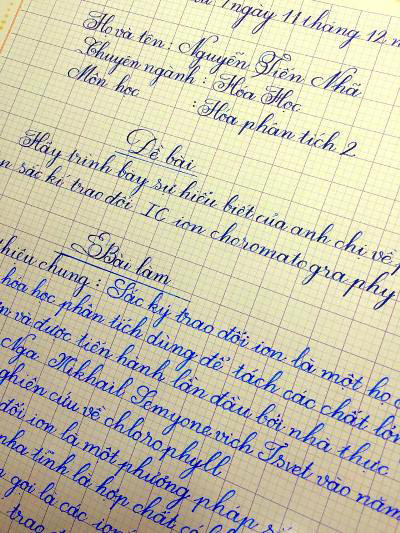 1 ngày 11 tháng 12, n
Họ và tên : Nguyễn Tiến Nhã
Chuyên ngành : Hóa Học
Môn học : Hóa phân tích 2
Đề bài
Hãy trình bày sự hiểu biết của anh chị về p
n sắc ký trao đổi IC ion choromatography
Bài làm
thiệu chung : Sắc ký trao đổi ion là một họ c
hóa học phân tích dùng để tách các chất lỏn
n và được tiến hành lần đầu bởi nhà thực
Nga Mikhail Semyonevich Tsvet vào năm
ghiên cứu về chlorophyll.
đổi ion là một phương pháp sắ
pha tĩnh là hợp chất có
gọi là các ion
trao đ